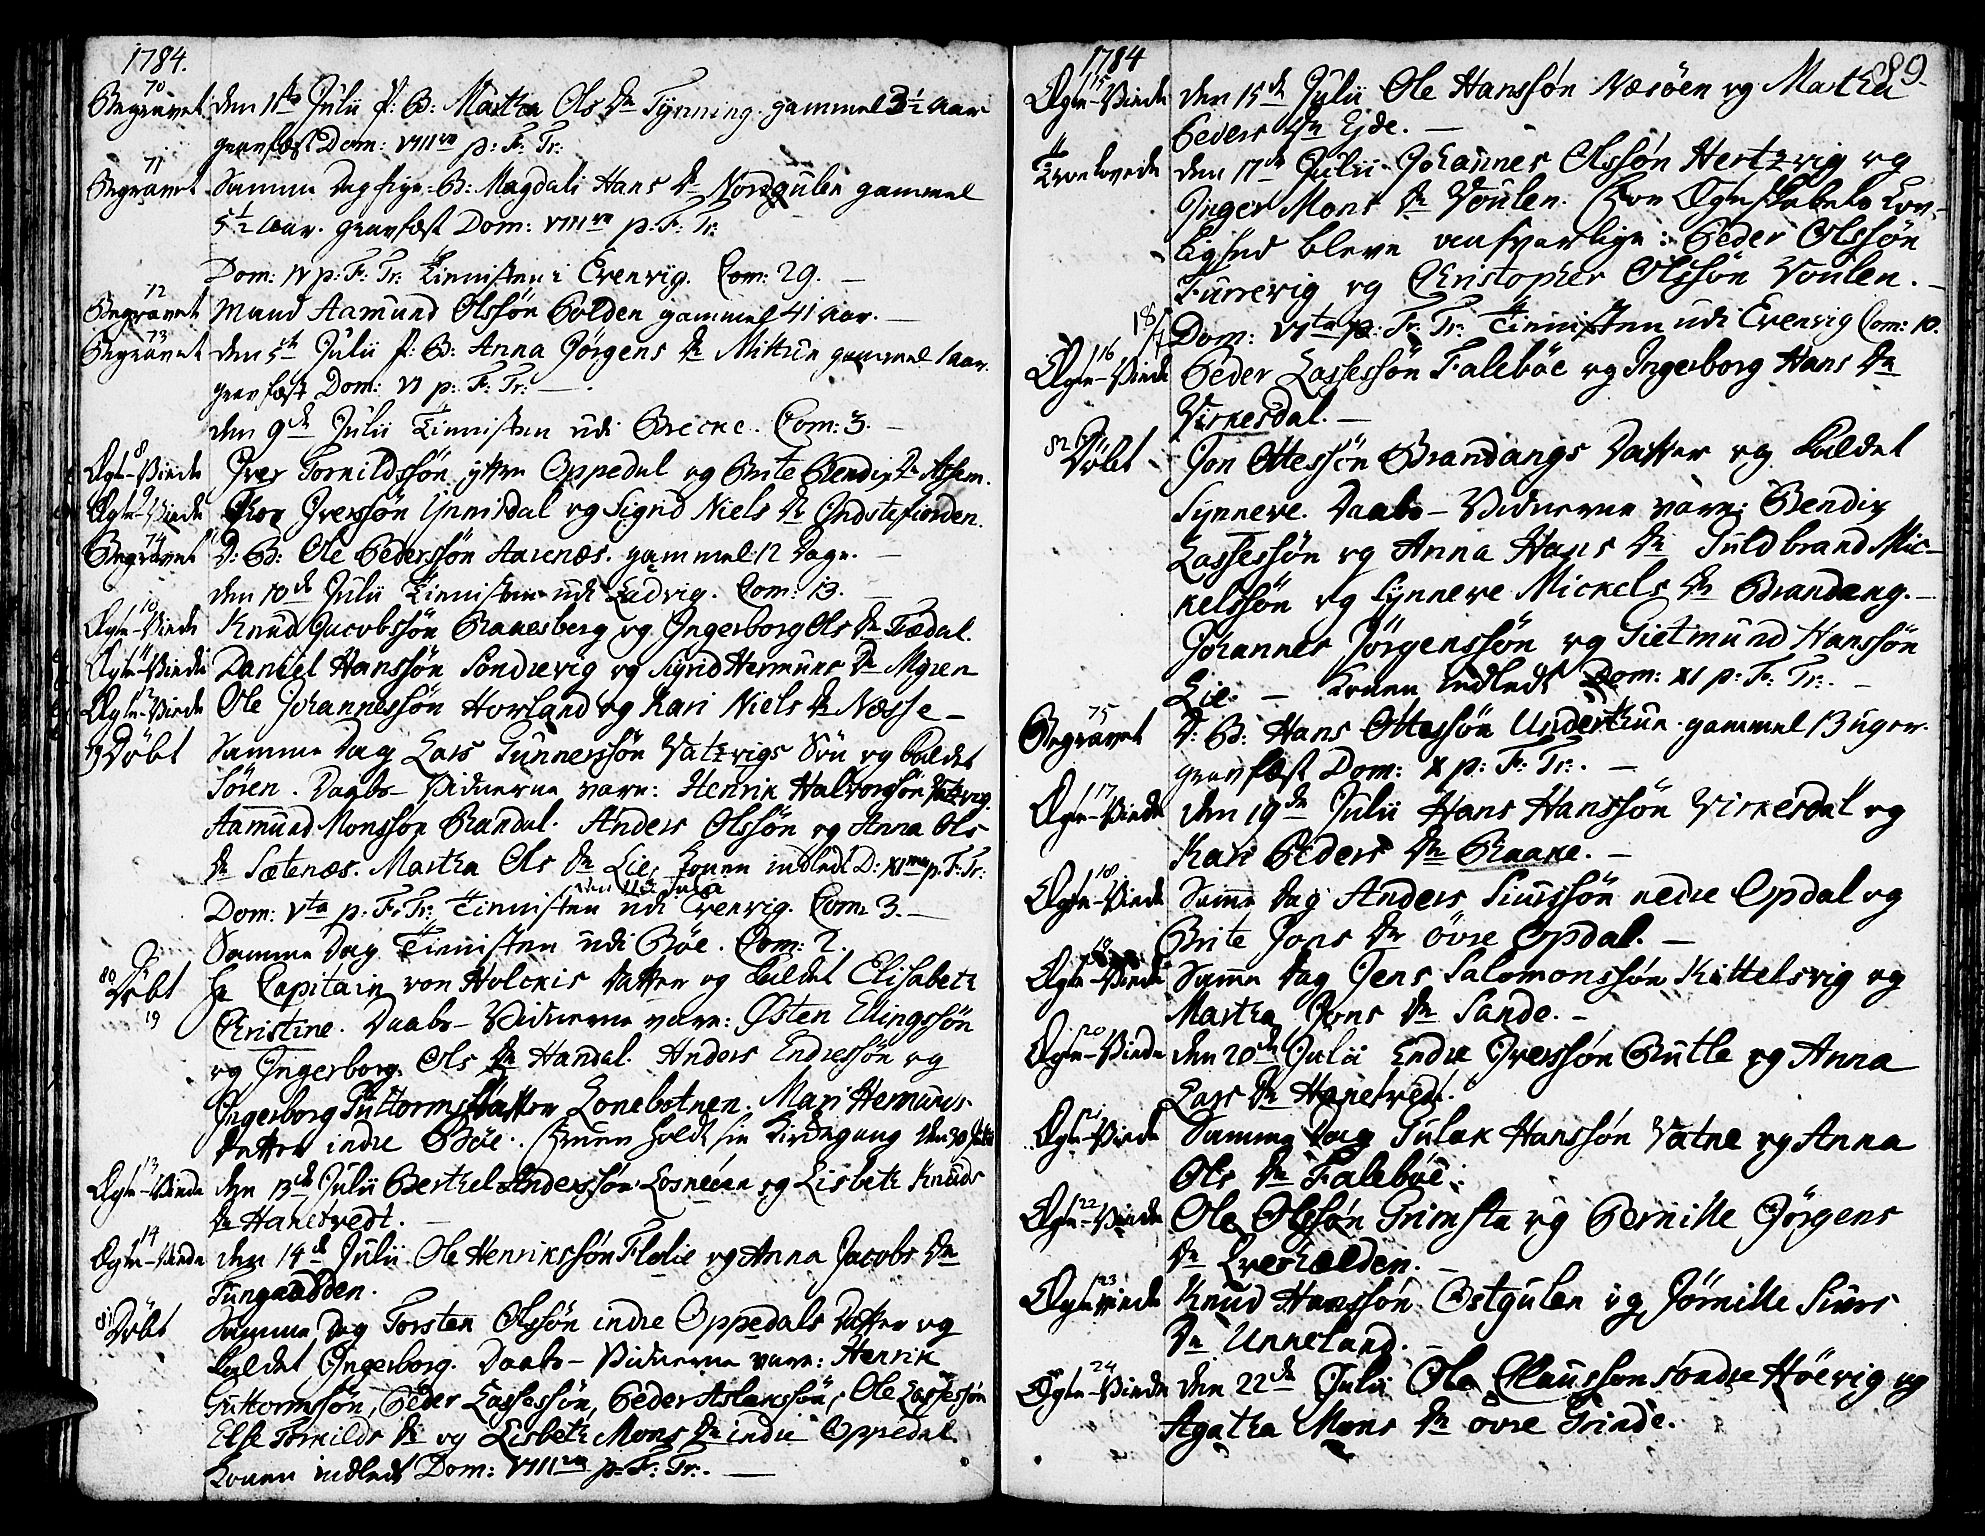 1784.
70
Begravet den 1ste Julii P: B: Martha Ols Dr Tynning. gammel 3½ Aar
gravfæst Dom: VIIIva p: F: Tr:
71
Begravet Samme Dag Pige-B: Magdali Hans Dr Nordgulen gammel
5½ Aar. gravfæst Dom: VIIIva p: F: Tr:
Dom: IV p: F: Tr: Tienisten i Evenvig. Com: 29. —
72
Begravet Mand Aamund Olssön Holden gammel 41 Aar. —
73
Begravet den 5te Julii P: B: Anna Jörgens Dr Mittun gammel 1 Aar.
gravfæst Dom: VI p: F: Tr: —.
den 9de Julii Tienisten udi Brecke. Com: 3. —
8
Ægte-Viede Iver Tornildssön yttre Oppedal og Brite Bendix Dr
9
Ægte-Viede Iverssön Ynnisdal og Sigrid Niels Dr Indstefiorden.
74
Begravet D: B: Ole Pederssön Aarenæs. gammel 12 Dage. —
den 10de Julii Tienisten udi Ladvig. Com: 13. —
10
Ægte-Viede Knud Jacobssön Ravnesberg og Ingerborg Ols Dr Trædal.
11
Ægte-Viede Daniel Hanssön Söndrevig og Sigrid Hermuns Dr Myren
12
Ægte-Viede Ole Johannessön Hovland og Kari Niels Dr Næsse —
79 Döbt Samme Dag Lars Gunnerssön Vatzvigs Sön og kaldet
Sören. Daabs-Vidnerne vare: Henrik Halvorssön Vatzvig.
Aamund Monssön Randal. Anders Olssön og Anna Ols
Dr Sætenæs. Martha Ols Dr Lie, konen indledt D: XIma p: F: Tr:
den 11te Julii
Dom: Vta p: F: Tr: Tienisten udi Evenvig. Com: 3. —
Samme Dag Tienisten udi Böe. Com: 2.
80 Döbt Hr Capitain von Holckis Datter og kaldet Elisabeth
19
Christine. Daabs-Vidnerne vare: Østen Ellingssön
og Ingerborg Ols Dr Handal. Anders Endressön og
Ingerborg Guttorms Datter Lonebotnen. Mari Hermuns
Datter indre Böe. Fruen holdt sin Kirkegang den 30 Julii
13
Ægte-Viede den 13de Julii Berthel Anderssön Losneöen og Lisbeth Knuds
Dr Hanetvedt. —
14
Ægte-Viede den 14de Julii Ole Henrikssön Flolie og Anna Jacobs Dr
Tungaadden.
81 Döbt Samme Dag Torsten Olssön indre Oppedals Datter og
kaldet Ingerborg. Daabs-Vidnerne vare: Henrik
Guttormssön, Peder Lassessön, Peder Aslaxssön, Ole Lassessön
Else Tornilds Dr og Lisbeth Mons Dr indre Oppedal.
konen indledt Dom: VIIIva p: F: Tr: —
1784
89.
15
Ægte-Viede den 15de Julii Ole Hanssön Næsöen og Martha
Peders Dr Eide. —
4
Troelovede den 17de Julii Johannes Olssön Hertzvig og
Inger Mons Dr Voulen. For Ægteskabets Lov-
lighed bleve ansvarlige: Peder Olssön
Furrevig og Christopher Olssön Voulen. —
18/7 Dom: VIta p: F: Tr: Tienisten udi Evenvig Com: 10.
16
Ægte-Viede Peder Lassessön Faleböe og Ingerborg Hans Dr
Virkesdal. —
82 Döbt Jon Ottessön Brandangs Datter og kaldet
Synneve. Daabs-Vidnerne vare: Bendix
Lassessön og Anna Hans Dr Guldbrand Mic-
kelssön og Synneve Mickels Dr Brandang. —
Johannes Jörgenssön og Gietmund Hanssön
Lie. — Konen indledt Dom: XI p: F: Tr: —
75
Begravet D: B: Hans Ottessön Underthun gammel 13 uger.
gravfæst Dom: X p: F: Tr: —
17
Ægte-Viede den 19de Julii Hans Hanssön Virkesdal og
Kari Peders Dr Raake. —
18
Ægte-Viede Samme Dag Anders Siurssön nedre Opdal og
Brite Jons Dr övre Opdal. —
19
Ægte-Viede Samme Dag Jens Salomonssön Kittelsvig og
Martha Jons Dr Sande. —
20
Ægte-Viede den 20de Julii Endre Iverssön Rutle og Anna
Lars Dr Hanetvedt.
21
Ægte-Viede Samme Dag Gulak Hanssön Vatne og Anna
Ols Dr Faleböe.
22
Ægte-Viede Ole Olssön Grimsta og Pernille Jörgens
Dr Lverhælden. —
23
Ægte-viede Knud Hanssön Ostgulen og Jörnille Siurs
Dr Unneland. —
24
Ægte-Viede den 22de Julii Ole Claussön Söndre Höevig og
Agatha Mons Dr övre Trinde.